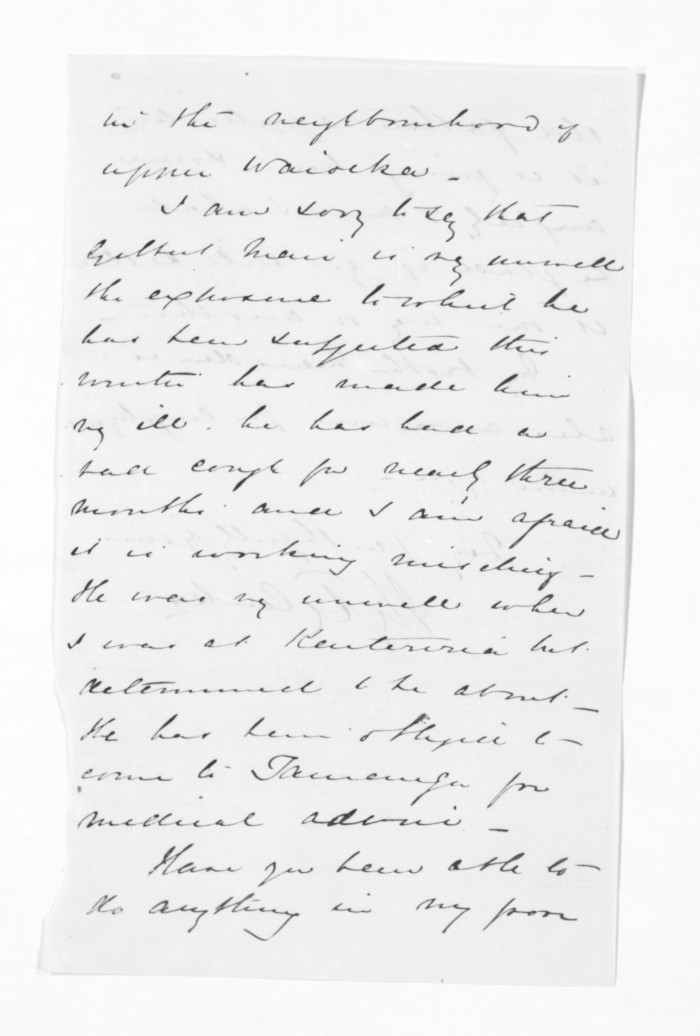 in the neighbourhood of
upper Waioeka _
I am sorry to say that
Gilbert Mair is very unwell
the exposure to which he
has been subjected this
winter has made him
very ill. he has had a
bad cough for nearly three
months and I am afraid
it is working mischief _
He was very unwell when
I was at but
determined to be about _
He has been obliged to
come to Tauranga for
medical advice _
Have you been able to
do anything in my poor